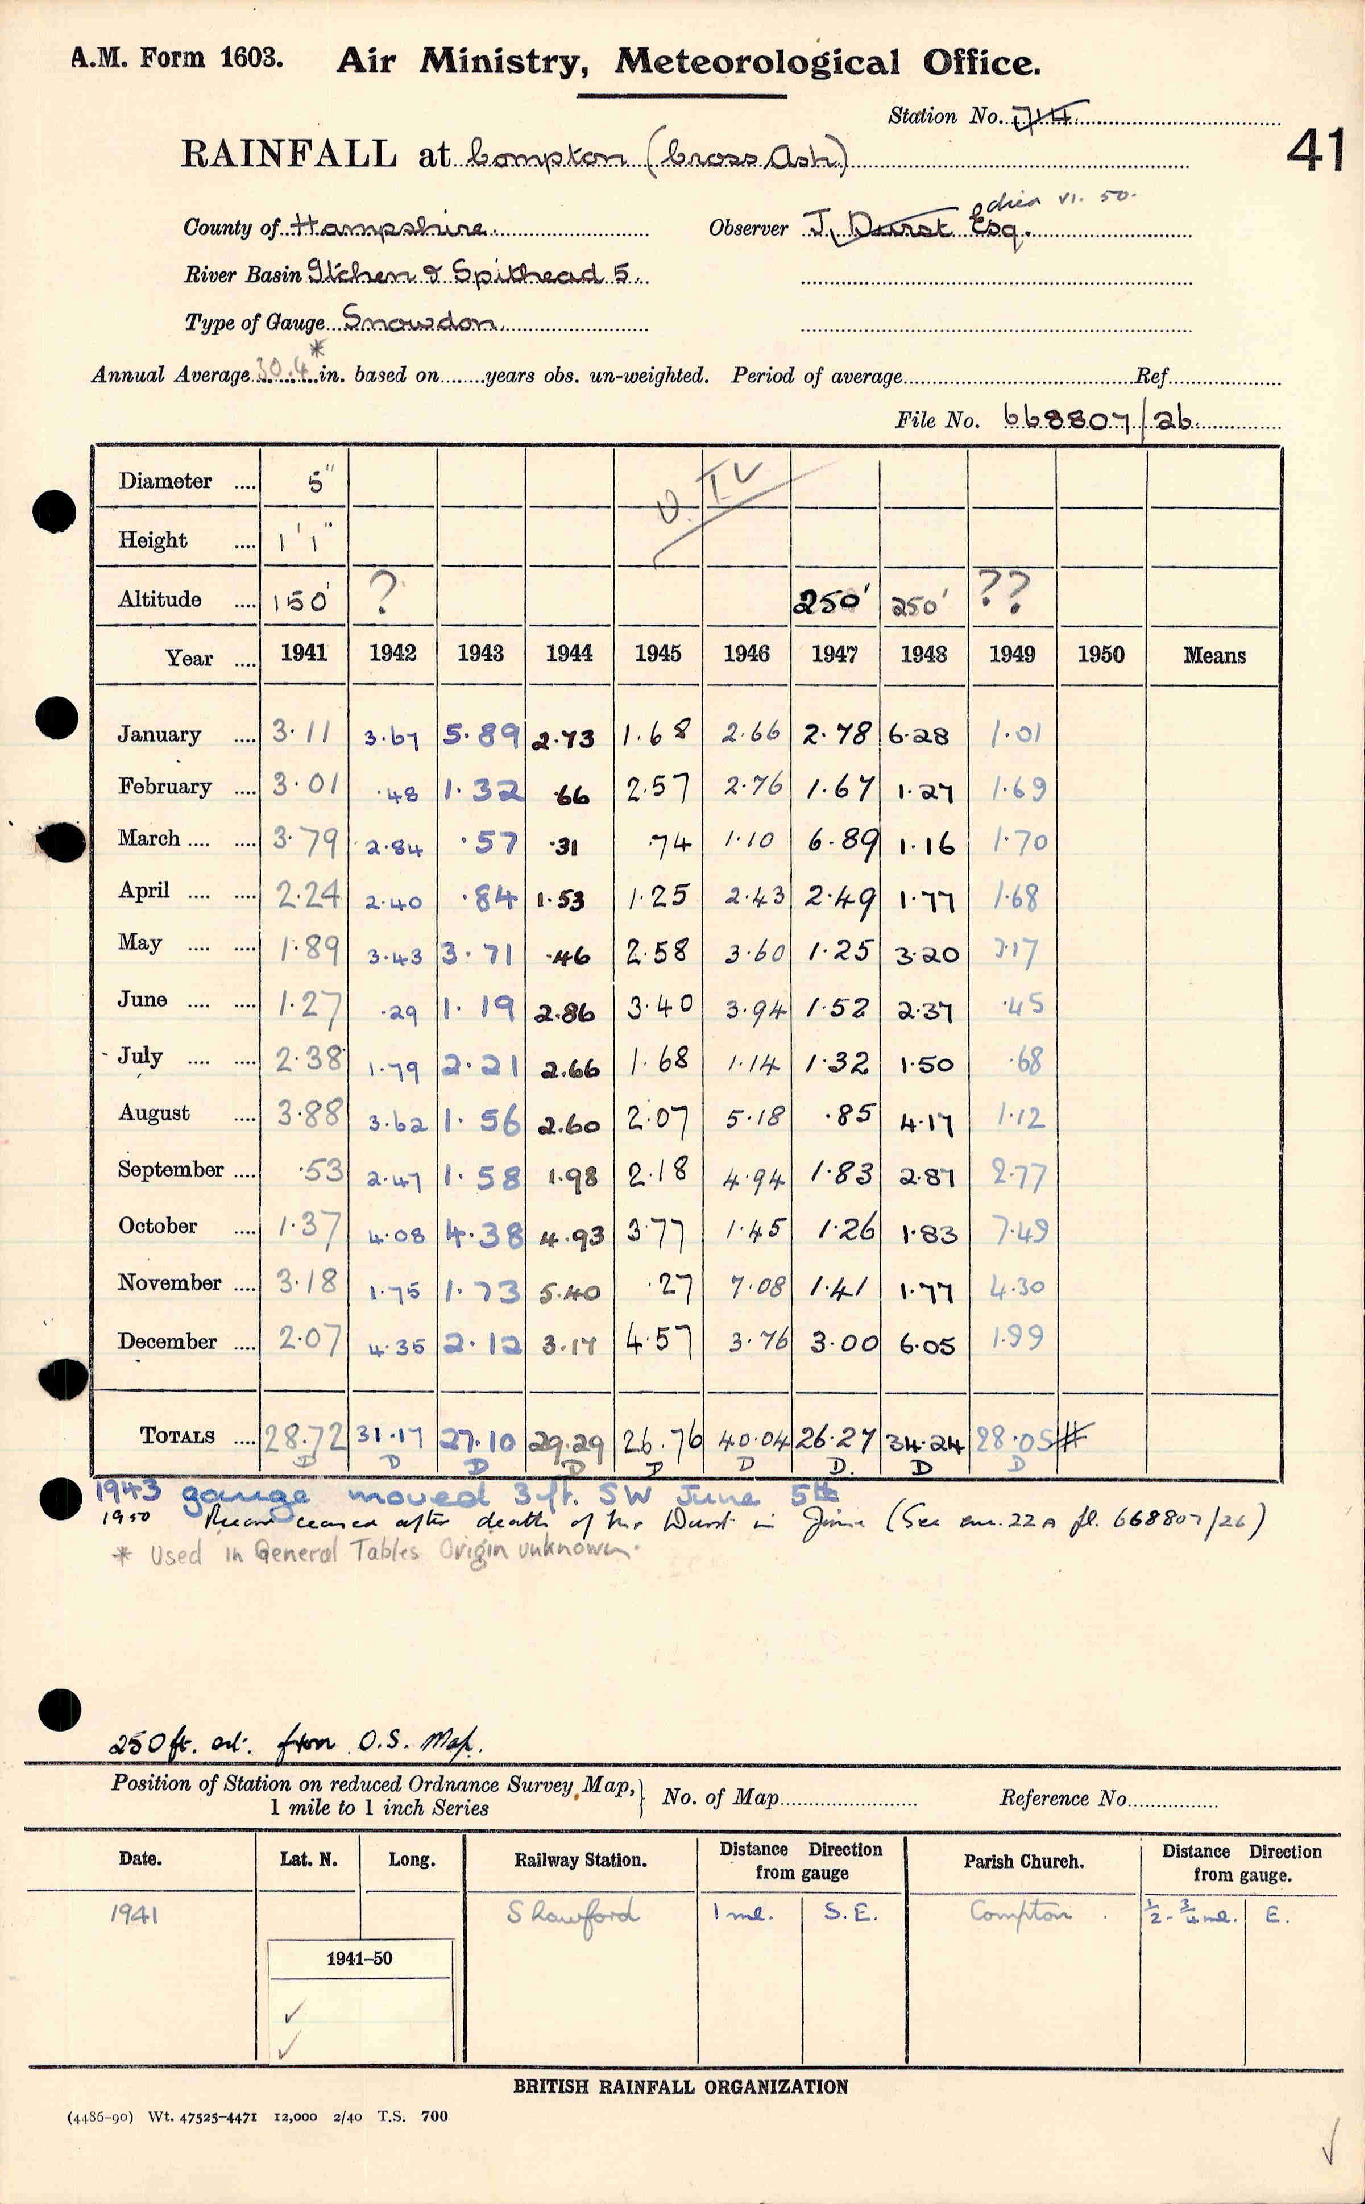 A.M. Form 1603. Air Ministry, Meteorological Office.
Station No. 714
RAINFALL at Compton (Cross Ash)
41
died VI. 50.
County of Hampshire Observer J. Durst Esq.
River Basin Itchen & Spithead 5.
Type of Gauge Snowdon
Annual Average 30.4* in. based on years obs. un-weighted. Period of average Ref.
File No. 668807/26
Diameter .... 5"
Height .... 1' 1"
Altitude .... 150' ? 250' 250' ??
Year .... 1941 1942 1943 1944 1945 1946 1947 1948 1949 1950 Means
January .... 3.11 3.67 5.89 2.73 1.68 2.66 2.78 6.28 1.01
February .... 3.01 .48 1.32 .66 2.57 2.76 1.67 1.27 1.69
March .... .... 3.79 2.84 .57 .31 .74 1.10 6.89 1.16 1.70
April .... .... 2.24 2.40 .84 1.53 1.25 2.43 2.49 1.77 1.68
May .... .... 1.89 3.43 3.71 .46 2.58 3.60 1.25 3.20 3.17
June .... .... 1.27 .29 1.19 2.86 3.40 3.94 1.52 2.37 .45
July .... .... 2.38 1.79 2.21 2.66 1.68 1.14 1.32 1.50 .68
August .... 3.88 3.62 1.56 2.60 2.07 5.18 .85 4.17 1.12
September .... .53 2.47 1.58 1.98 2.18 4.94 1.83 2.87 2.77
October .... 1.37 4.08 4.38 4.93 3.77 1.45 1.26 1.83 7.49
November .... 3.18 1.75 1.73 5.40 .27 7.08 1.41 1.77 4.30
December .... 2.07 4.35 2.12 3.17 4.57 3.76 3.00 6.05 1.99
TOTALS .... 28.72 31.17 27.10 29.29 26.76 40.04 26.27 34.24 28.05 #
D D D D D D D. D D
1943 gauge moved 3 ft. SW June 5th
1950 Record ceased after death of Mr Durst in June (See enc. 22A fl. 668807/26)
* Used in General Tables Origin unknown.
250 ft. alt. from O.S. Map.
Position of Station on reduced Ordnance Survey Map, 1 mile to 1 inch Series } No. of Map Reference No.
Date. Lat. N. Long. Railway Station. Distance Direction from gauge Parish Church. Distance Direction from gauge.
1941 Shawford 1 ml. S.E. Compton ½ - ¾ ml. E.
1941-50
✓
✓
BRITISH RAINFALL ORGANIZATION
(4486-90) Wt. 47525-4471 12,000 2/40 T.S. 700
✓